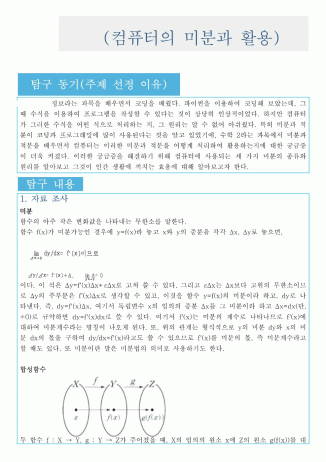 (컴퓨터의 미분과 활용)
탐구 동기(주제 선정 이유)
정보라는 과목을 배우면서 코딩을 배웠다. 파이썬을 이용하여 코딩해 보았는데, 그
때 수식을 이용하여 프로그램을 작성할 수 있다는 것이 상당히 인상적이었다. 하지만 컴퓨터
가 그러한 수식을 어떤 식으로 처리하는 지, 그 원리는 알 수 없어 아쉬웠다. 특히 미분과 적
분이 코딩과 프로그래밍에 많이 사용된다는 것을 알고 있었기에, 수학 2라는 과목에서 미분과
적분을 배우면서 컴퓨터는 이러한 미분과 적분을 어떻게 처리하여 활용하는지에 대한 궁금증
이 더욱 커졌다. 이러한 궁금증을 해결하기 위해 컴퓨터에 사용되는 세 가지 미분의 종류와
원리를 알아보고 그것이 인간 생활에 끼치는 효용에 대해 알아보고자 한다.
탐구 내용
1. 자료 조사
미분
함수의 아주 작은 변화값을 나타내는 무한소를 말한다.
함수 f(x)가 미분가능인 경우에 y=f(x)라 놓고 x와 y의 증분을 각각 Δx, Δy로 놓으면,
dy/dx= f'(x)이므로
이다. 이 식은 Δy=f'(x)Δx+εΔx로 고쳐 쓸 수 있다. 그리고 εΔx는 Δx보다 고위의 무한소이므
로 Δy의 주부분은 f'(x)Δx로 생각할 수 있고, 이것을 함수 y=f(x)의 미분이라 하고, dy로 나
타낸다. 즉, dy=f'(x)Δx, 여기서 독립변수 x의 임의의 증분 Δx를 그 미분이라 하고 Δx=dx(단,
≠0)로 규약하면 dy=f'(x)dx로 쓸 수 있다. 여기서 f'(x)는 미분의 계수로 나타나므로 f'(x)에
대하여 미분계수라는 명칭이 나오게 된다. 또, 위의 관계는 형식적으로 y의 미분 dy와 x의 미
분 dx의 몫을 구하여 dy/dx=f'(x)라고도 쓸 수 있으므로 f'(x)를 미분의 몫, 즉 미분계수라고
할 때도 있다. 또 미분이란 말은 미분법의 의미로 사용하기도 한다.
합성함수
X f Y g Z
x f(x) g(f(x))
두 함수 f : X → Y, g : Y → Z가 주어졌을 때, X의 임의의 원소 x에 Z의 원소 g(f(x))를 대